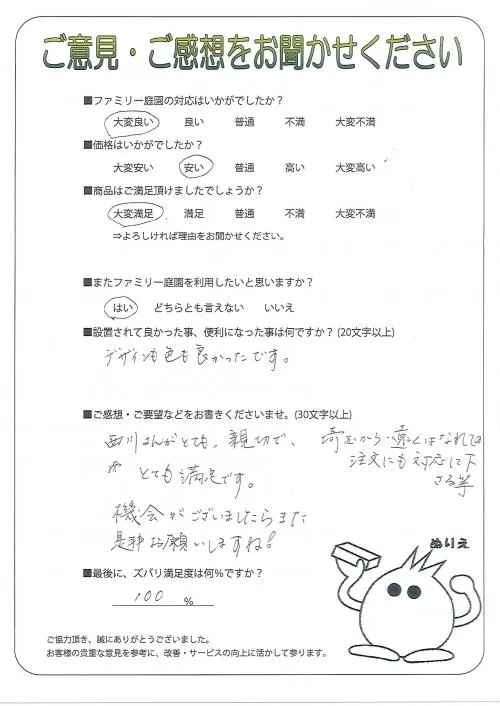 ご意見・ご感想をお聞かせください
■ファミリー庭園の対応はいかがでしたか？
大変良い 良い 普通 不満 大変不満
■価格はいかがでしたか？
大変安い 安い 普通 高い 大変高い
■商品はご満足頂けましたでしょうか？
大変満足 満足 普通 不満 大変不満
⇒よろしければ理由をお聞かせください。
■またファミリー庭園を利用したいと思いますか？
はい どちらとも言えない いいえ
■設置されて良かった事、便利になった事は何ですか？(20文字以上)
デザインも色も良かったです。
■ご感想・ご要望などをお書きくださいませ。(30文字以上)
西川さんがとても、親切で、
埼玉から遠くはなれてる
注文にも対応して下
さる等
とても満足です。
機会がございましたらまた
是非お願いしますね！
ぬりえ
■最後に、ズバリ満足度は何％ですか？
100 %
ご協力頂き、誠にありがとうございました。
お客様の貴重な意見を参考に、改善・サービスの向上に活かして参ります。